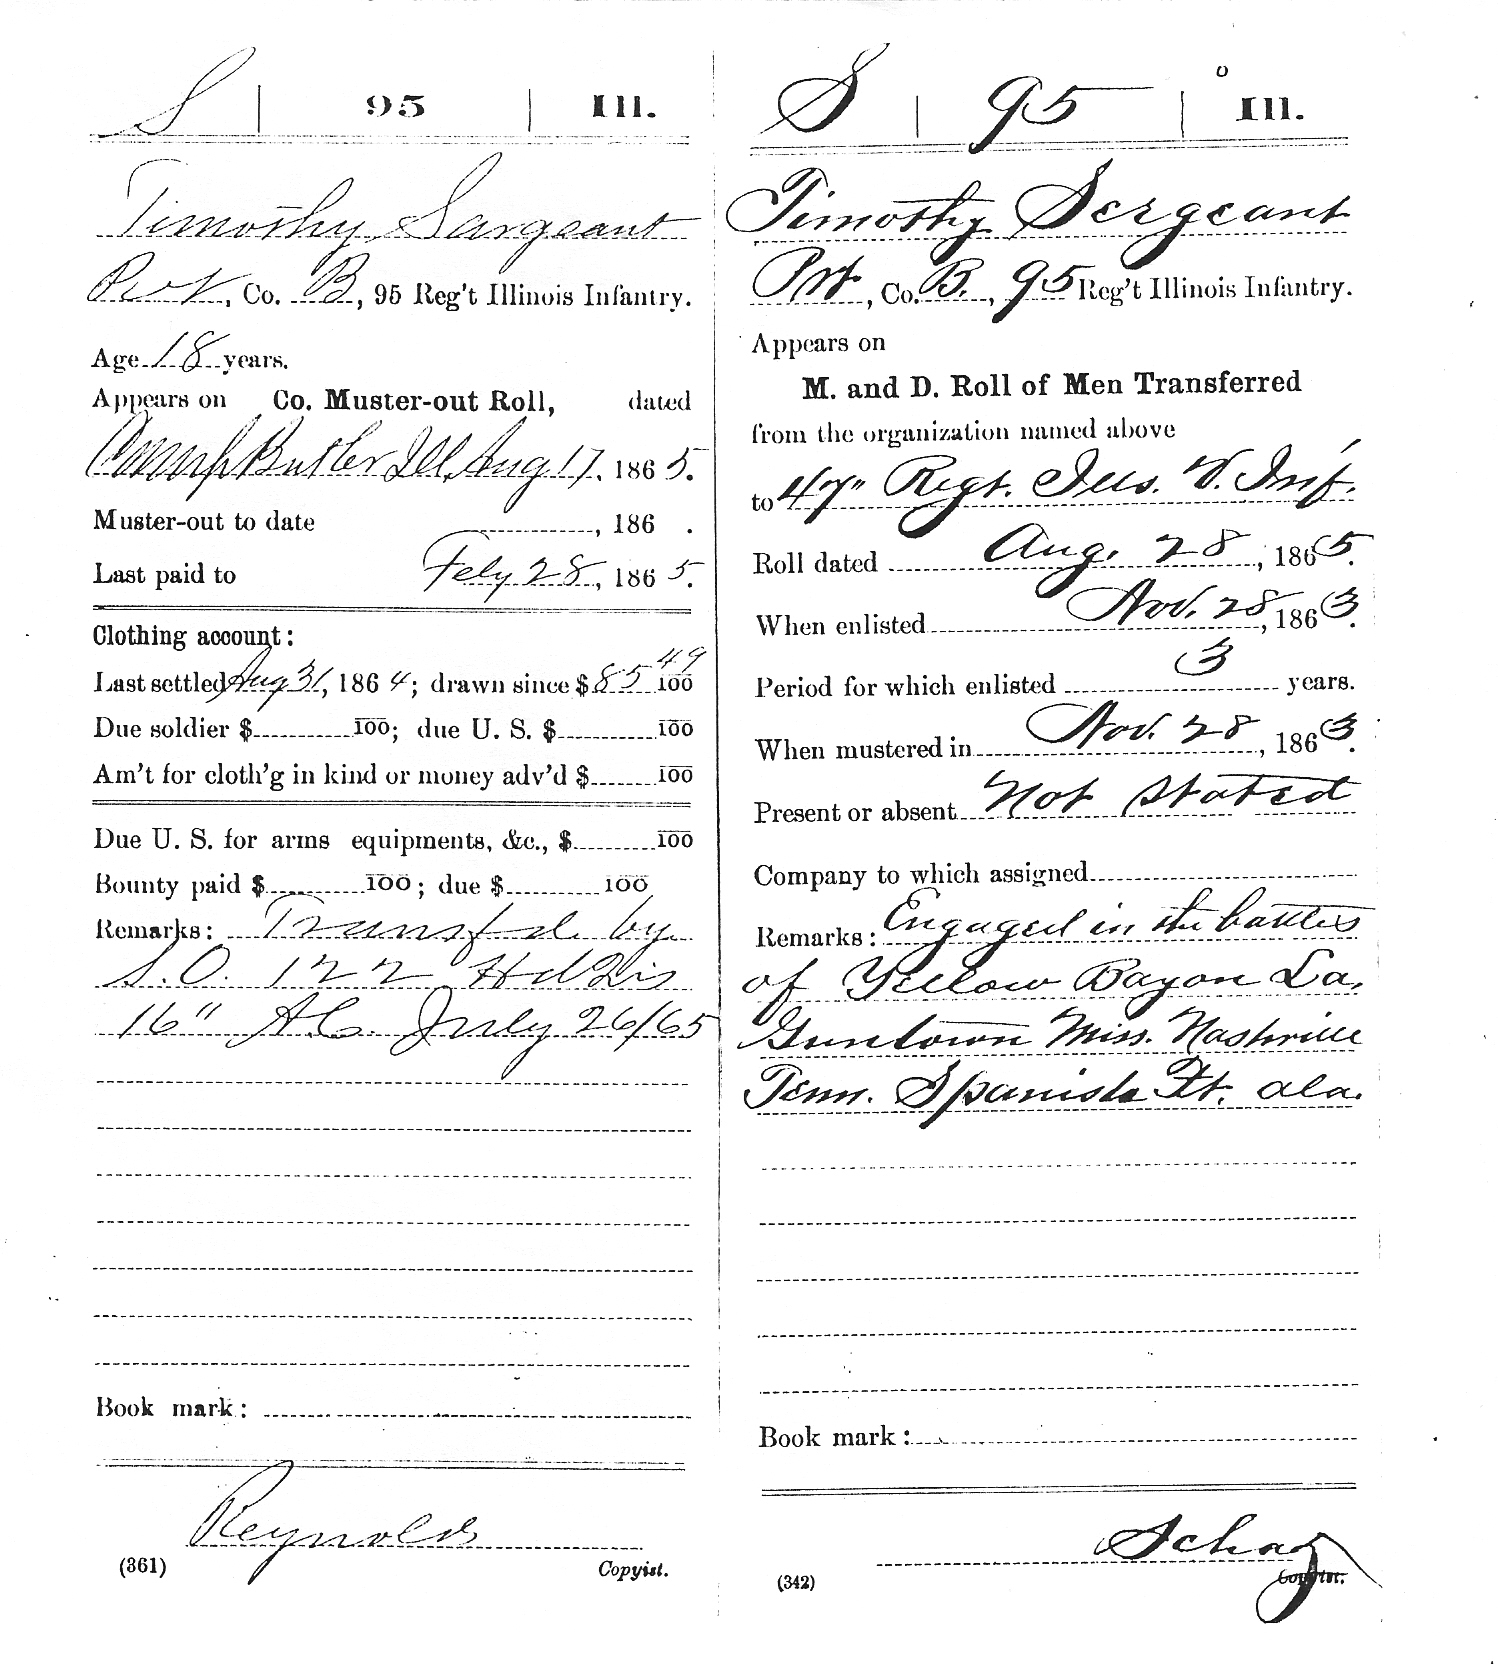 S | 95 | Ill.
Timothy Sargeant
Pvt, Co. B, 95 Reg't Illinois Infantry.
Age 18 years.
Appears on Co. Muster-out Roll, dated
Camp Butler Ill, Aug 17, 1865.
Muster-out to date , 186 .
Last paid to Feby 28, 1865.
Clothing account:
Last settled Aug 31, 1864; drawn since $85 49/100
Due soldier $ 100; due U. S. $ 100
Am't for cloth'g in kind or money adv'd $ 100
Due U. S. for arms equipments, &c., $ 100
Bounty paid $ 100; due $ 100
Remarks: Transfd. by
S.O. 122 Hd Qrs
16" A.C. July 26/65
Book mark:
Reynolds
(361) Copyist.
S | 95 | Ill.
Timothy Sergeant
Pvt, Co. B., 95 Reg't Illinois Infantry.
Appears on
M. and D. Roll of Men Transferred
from the organization named above
to 47" Regt. Ills. V. Inf.
Roll dated Aug. 28, 1865.
When enlisted Nov. 28, 1863.
Period for which enlisted 3 years.
When mustered in Nov. 28, 1863.
Present or absent Not stated
Company to which assigned
Remarks: Engaged in the battles
of Yellow Bayou La.
Guntown Miss. Nashville
Tenn. Spanish Ft. Ala.
Book mark:
(342) Copyist.